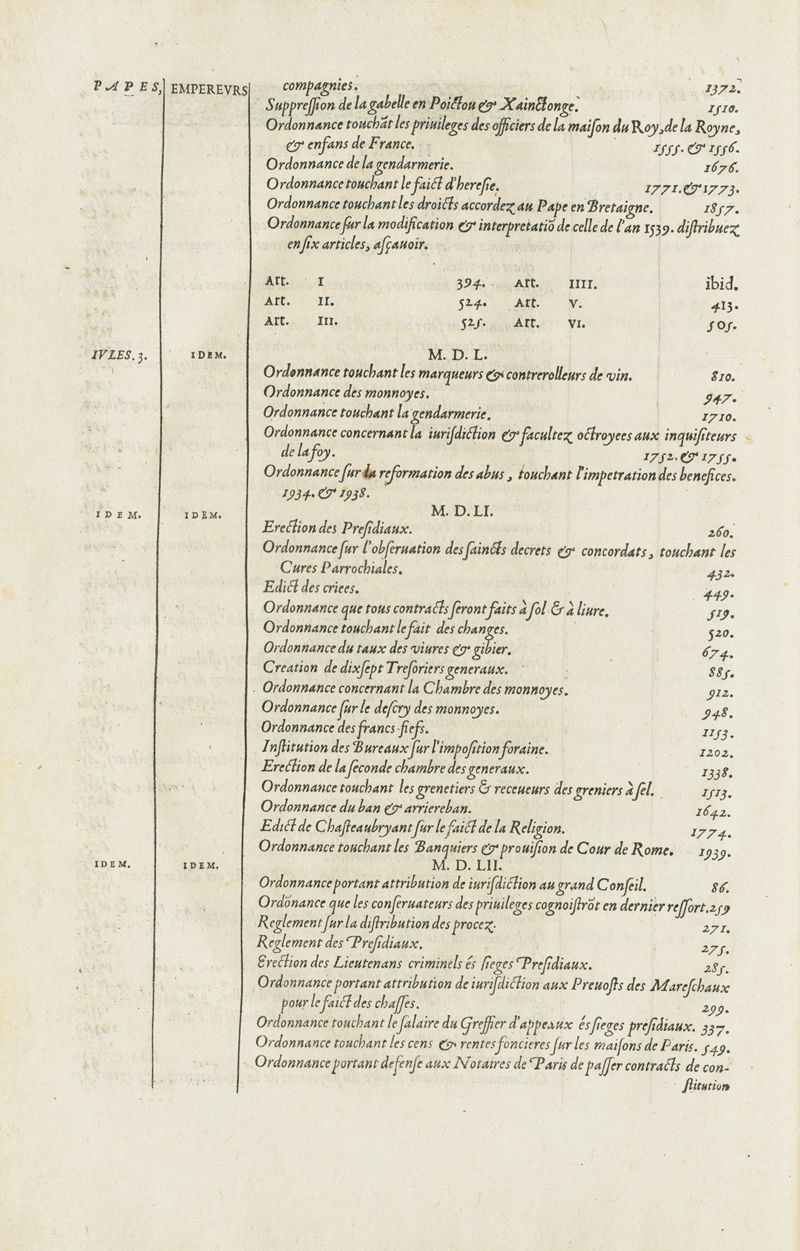 PAPES, EMPEREVRS compagnies. 1372.
Suppreſſion de la gabelle en Poictou & Xainctonge. 1510.
Ordonnance touchāt les priuileges des officiers de la maiſon du Roy, de la Royne,
& enfans de France. 1555. & 1556.
Ordonnance de la gendarmerie. 1676.
Ordonnance touchant le faict d'hereſie. 1771. & 1773.
Ordonnance touchant les droicts accordez au Pape en Bretaigne. 1857.
Ordonnance ſur la modification & interpretatiō de celle de l'an 1539. diſtribuez
en ſix articles, aſçauoir.
Art. I 394. Art. IIII. ibid.
Art. II. 524. Art. V. 413.
Art. III. 525. Art. VI. 505.
IVLES. 3. IDEM. M. D. L.
Ordonnance touchant les marqueurs & contrerolleurs de vin. 810.
Ordonnance des monnoyes. 947.
Ordonnance touchant la gendarmerie. 1710.
Ordonnance concernant la iuriſdiction & facultez octroyees aux inquiſiteurs
de la foy. 1752. & 1755.
Ordonnance ſur la reformation des abus, touchant l'impetration des benefices.
1934. & 1938.
IDEM. IDEM. M. D. LI.
Erection des Preſidiaux. 260.
Ordonnance ſur l'obſeruation des ſaincts decrets & concordats, touchant les
Cures Parrochiales. 432.
Edict des criees. 449.
Ordonnance que tous contracts ſeront faits à ſol & à liure. 519.
Ordonnance touchant le fait des changes. 520.
Ordonnance du taux des viures & gibier. 674.
Creation de dixſept Treſoriers generaux. 885.
Ordonnance concernant la Chambre des monnoyes. 912.
Ordonnance ſur le deſcry des monnoyes. 948.
Ordonnance des francs-fiefs. 1153.
Inſtitution des Bureaux ſur l'impoſition foraine. 1202.
Erection de la ſeconde chambre des generaux. 1338.
Ordonnance touchant les grenetiers & receueurs des greniers à ſel. 1513.
Ordonnance du ban & arriereban. 1642.
Edict de Chaſteaubryant ſur le faict de la Religion. 1774.
Ordonnance touchant les Banquiers & prouiſion de Cour de Rome. 1939.
IDEM. IDEM. M. D. LII.
Ordonnance portant attribution de iuriſdiction au grand Conſeil. 86.
Ordōnance que les conſeruateurs des priuileges cognoiſtrōt en dernier reſſort. 259
Reglement ſur la diſtribution des procez. 271.
Reglement des Preſidiaux. 275.
Erection des Lieutenans criminels és ſieges Preſidiaux. 285.
Ordonnance portant attribution de iuriſdiction aux Preuoſts des Mareſchaux
pour le faict des chaſſes. 299.
Ordonnance touchant le ſalaire du Greffier d'appeaux és ſieges preſidiaux. 337.
Ordonnance touchant les cens & rentes foncieres ſur les maiſons de Paris. 549.
Ordonnance portant defenſe aux Notaires de Paris de paſſer contracts de con-
ſtitution